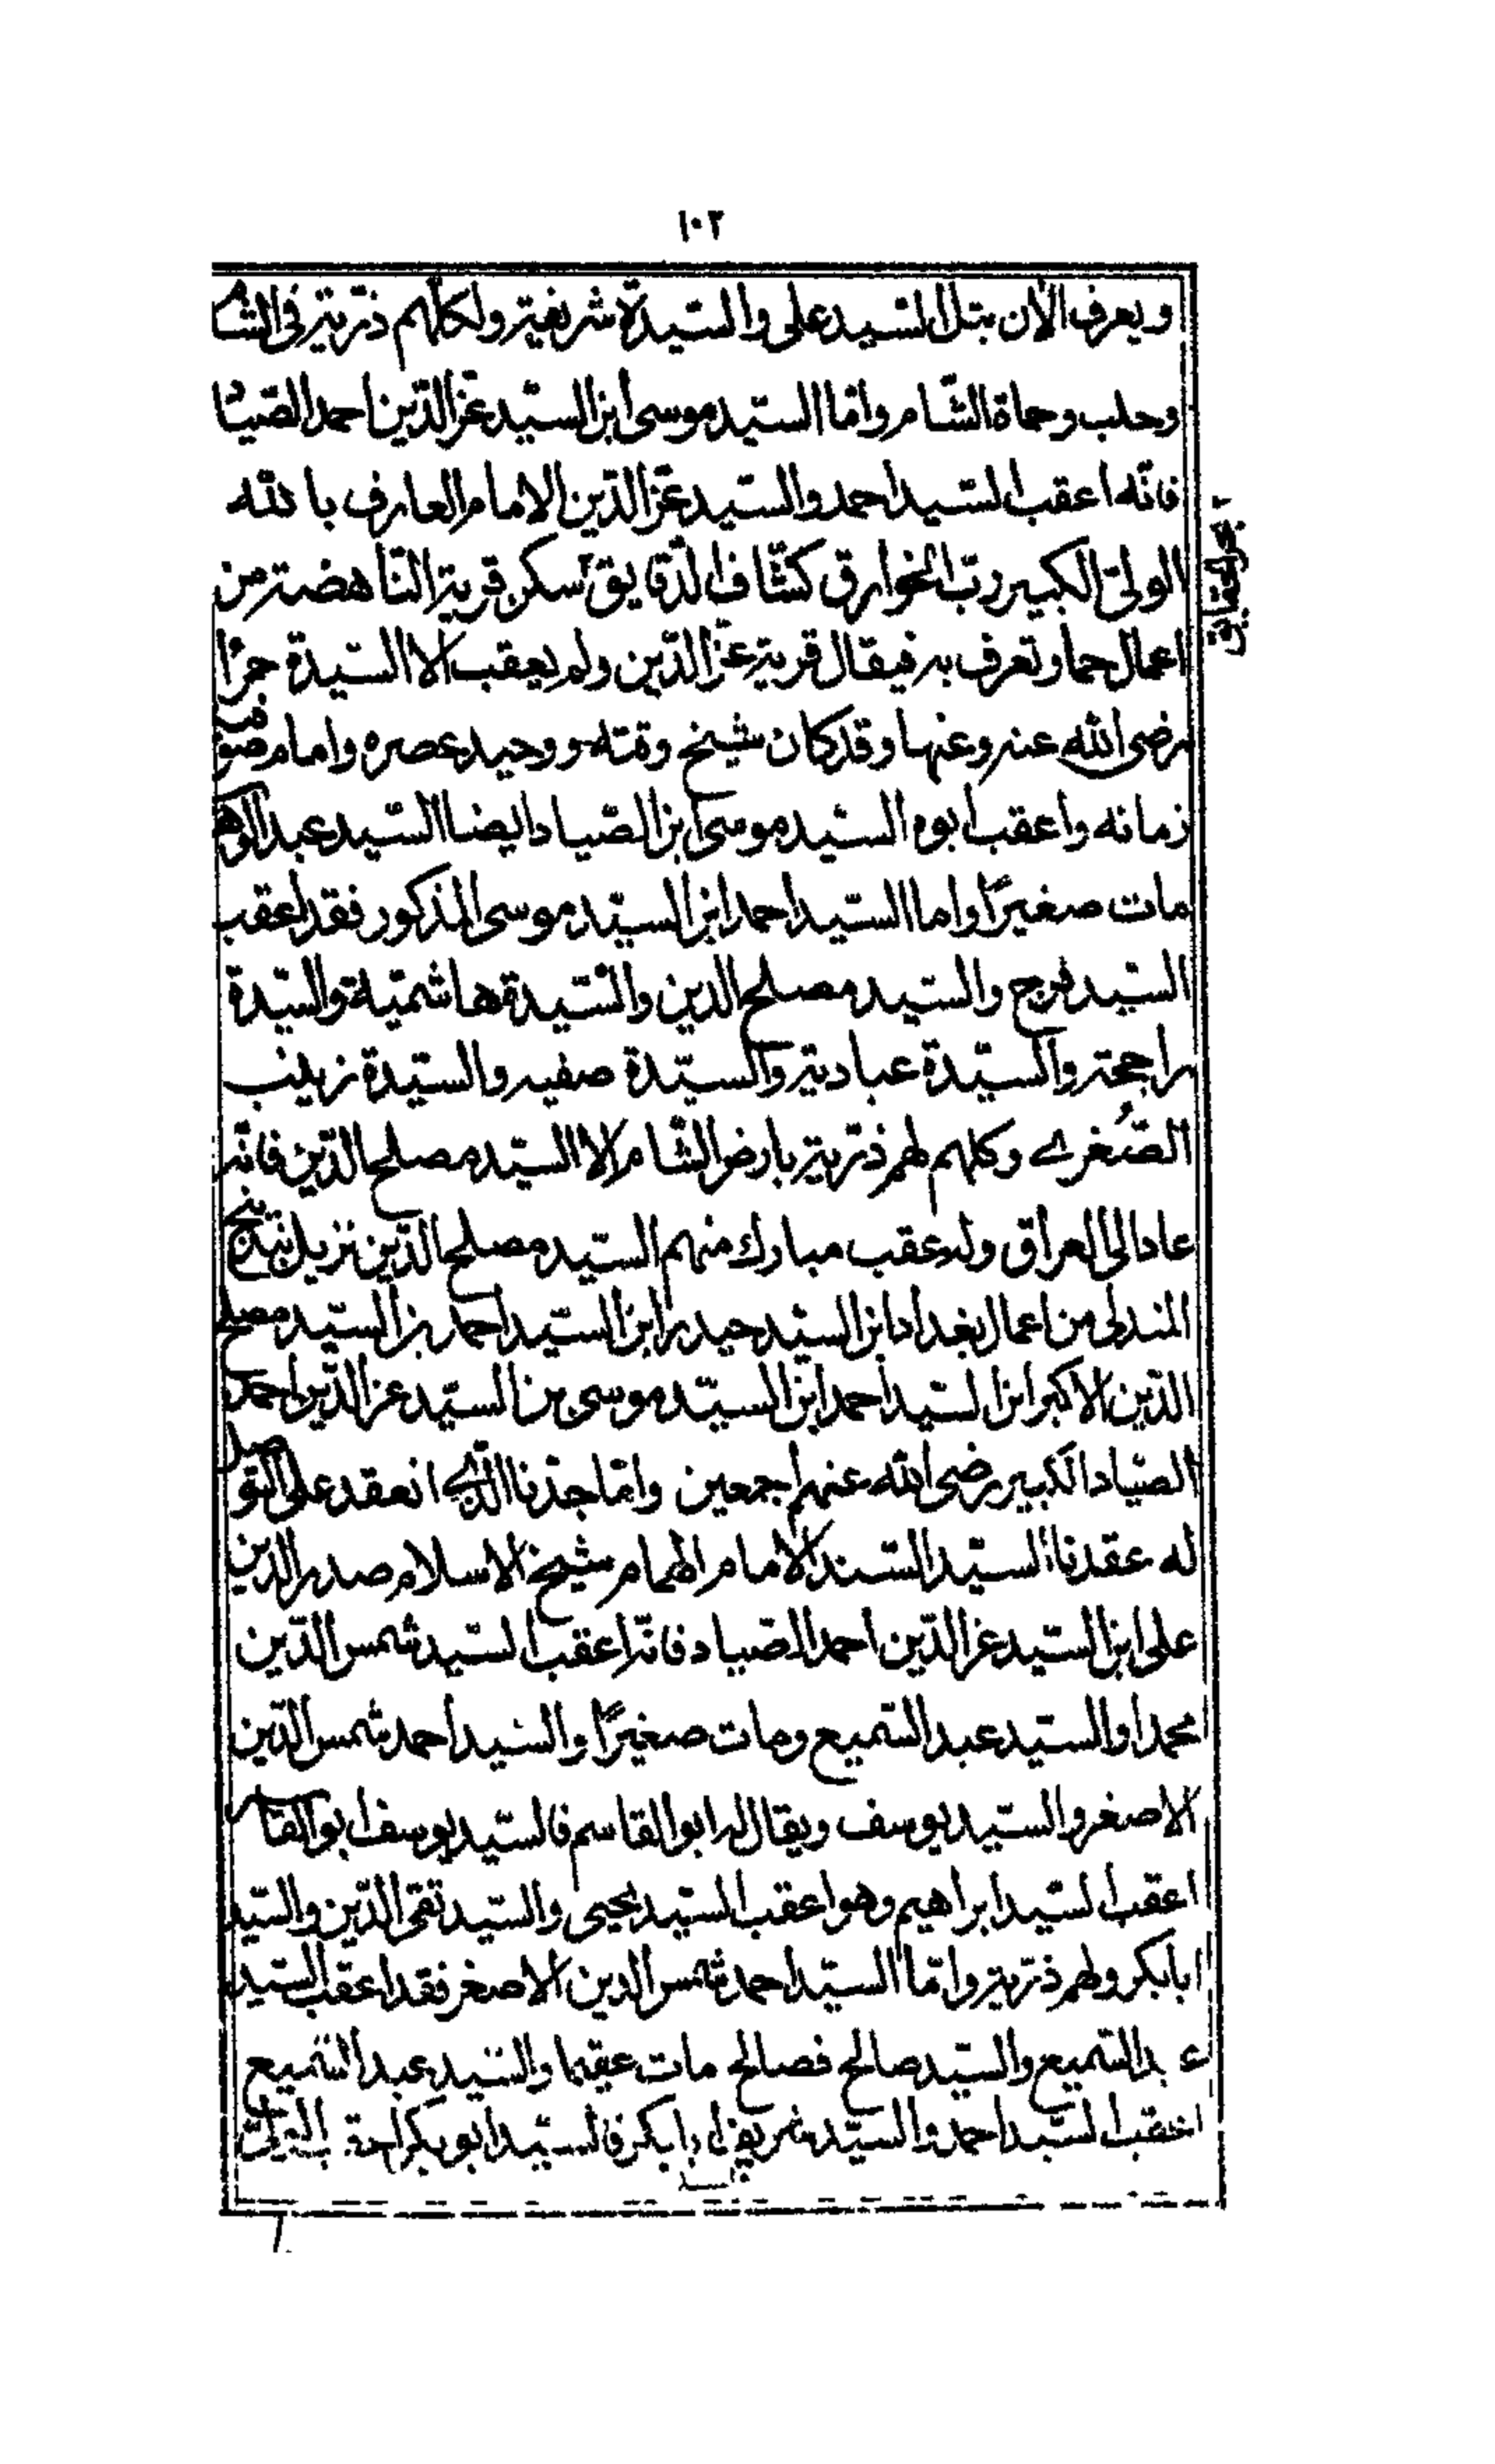 ١٠٢
ويعرف الآن بتل السيد على والسيدة شريفة ولكلهم ذرية في الشام
وحلب وحماة الشام واما السيد موسى ابن السيد عز الدين احمد الصياد
فانه اعقب السيد احمد والسيد عز الدين الامام العارف بالله
الولى الكبير رب الخوارق كشاف الدقايق سكن قرية الناهضة من
بحر الحقايق
اعمال حما وتعرف به فيقال قرية عز الدين ولم يعقب الا السيدة حمرا
رضى الله عنه وعنها وقد كان شيخ وقته ووحيد عصره وامام صوفية
زمانه واعقب ابوه السيد موسى ابن الصياد ايضا السيد عبد الوهاب
مات صغيرًا واما السيد احمد ابن السيد موسى المذكور فقد اعقب
السيد فرج والسيد مصلح الدين والسيدة هاشمية والسيدة
راجحة والسيدة عبادية والسيدة صفيه والسيدة زينب
الصُغرى وكلهم لهم ذرية بارض الشام الا السيد مصلح الدين فانه
عاد الى العراق وله عقب مبارك منهم السيد مصلح الدين نزيل بندنيج
المندلى من اعمال بغداد ابن السيد حيدر ابن السيد احمد بن السيد مصلح
الدين الاكبر ابن السيد احمد ابن السيد موسى بن السيد عز الدين احمد
الصياد الكبير رضى الله عنهم اجمعين واما جدنا الذى انعقد على التوصل
له عقدنا السيد السند الامام الهمام شيخ الاسلام صدر الدين
على ابن السيد عز الدين احمد الصياد فانه اعقب السيد شمس الدين
محمدا والسيد عبد السميع ومات صغيرًا والسيد احمد شمس الدين
الاصغر والسيد يوسف ويقال له ابو القاسم فالسيد يوسف ابو القاسم
اعقب السيد ابراهيم وهو اعقب السيد يحيى والسيد تقى الدين والسيد
ابا بكر ولهم ذرية واما السيد احمد شمس الدين الاصغر فقد اعقب السيد
عبد السميع والسيد صالح فصالح مات عقيما والسيد عبد السميع
اعقب السيد احمد والسيد ابا بكر فالسيد ابو بكر